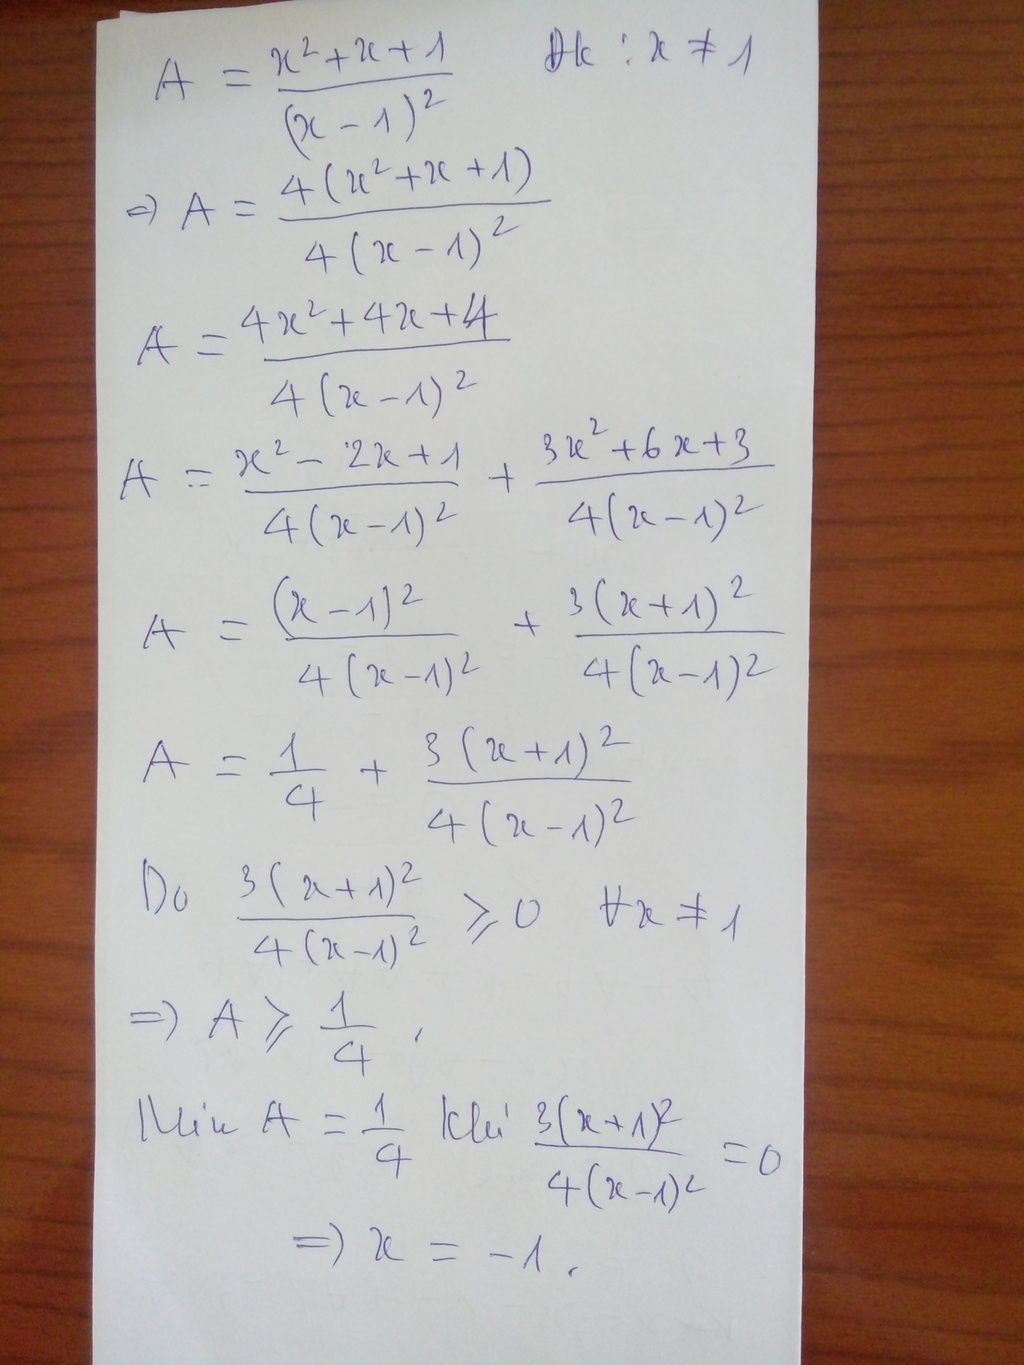 A = \frac{x^2+x+1}{(x-1)^2} đk : x ≠ 1
=> A = \frac{4(x^2+x+1)}{4(x-1)^2}
A = \frac{4x^2+4x+4}{4(x-1)^2}
A = \frac{x^2-2x+1}{4(x-1)^2} + \frac{3x^2+6x+3}{4(x-1)^2}
A = \frac{(x-1)^2}{4(x-1)^2} + \frac{3(x+1)^2}{4(x-1)^2}
A = \frac{1}{4} + \frac{3(x+1)^2}{4(x-1)^2}
Do \frac{3(x+1)^2}{4(x-1)^2} ⩾ 0 ∀x ≠ 1
=> A ⩾ \frac{1}{4} .
Min A = \frac{1}{4} khi \frac{3(x+1)^2}{4(x-1)^2} = 0
=> x = -1 .